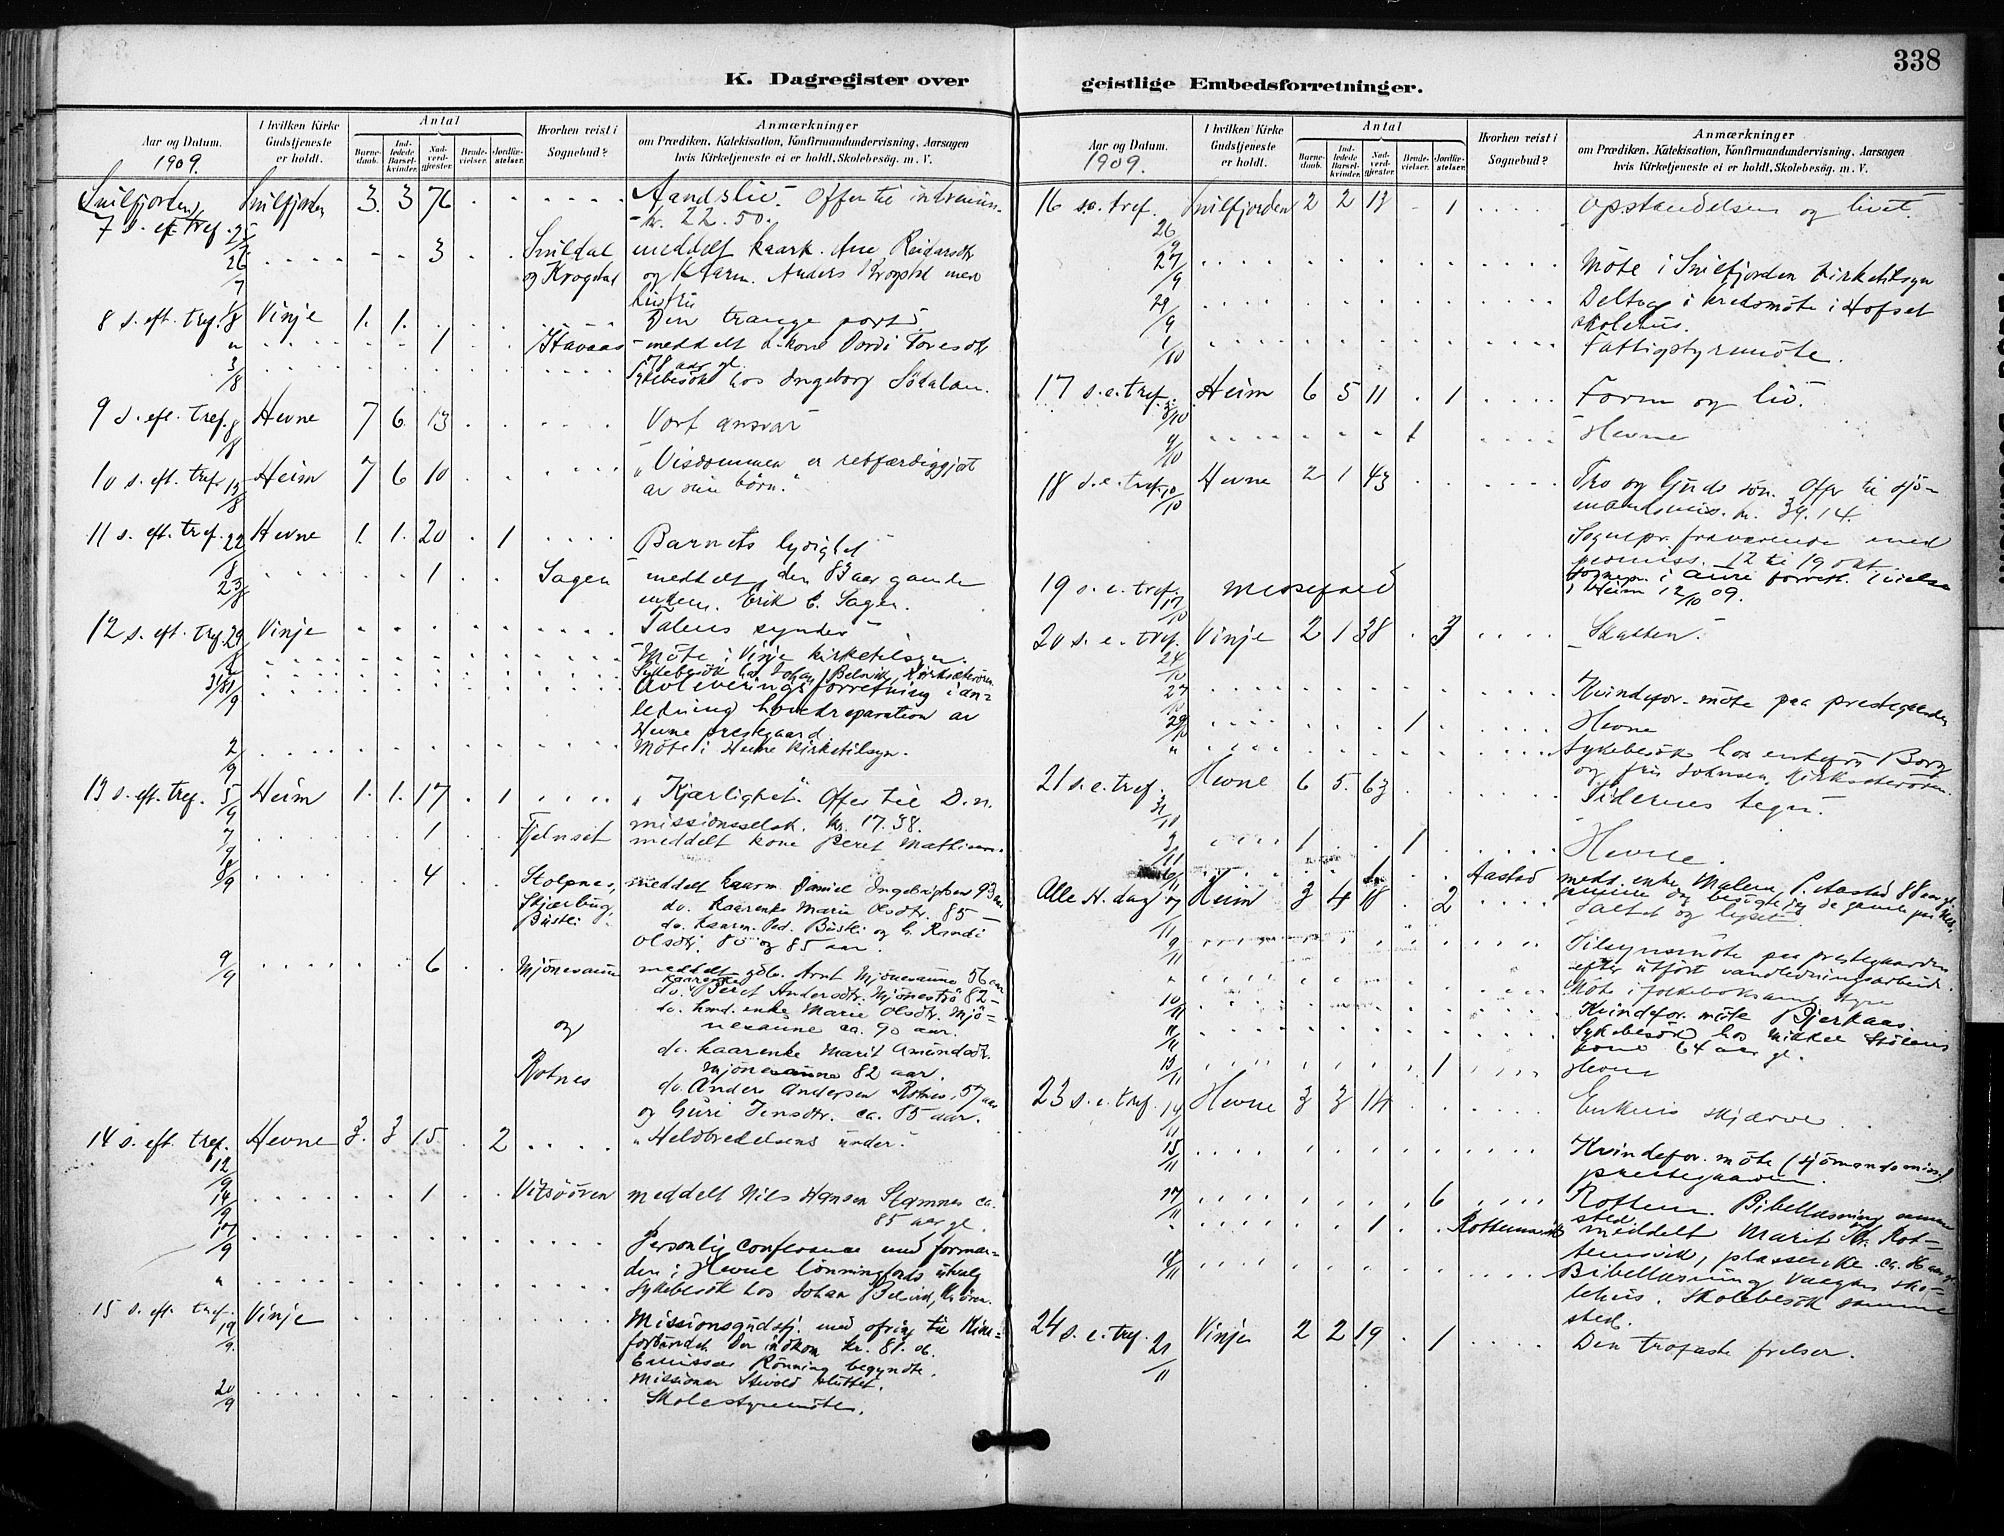 338
K. Dagregister over
geistlige Embedsforretninger.
Aar og Datum.
1909.
I hvilken Kirke Gudstjeneste er holdt.
Antal
Barnedaab.
Indledede Barselkvinder.
Nadverdgjester.
Brudevielser.
Jordfæstelser.
Hvorhen reist i Sognebud?
Anmærkninger
om Prædiken, Katekisation, Konfirmandundervisning, Aarsagen
hvis Kirketjeneste ei er holdt, Skolebesøg. m. V.
Snilfjorden 3. 3 76 Aandsliv. Offer til
7 s. eft. tref. 25/7 kr. 22.50.
26/7 3 Snildal meddelt kaark. Ane Reidarsdtr
og Krogstad og Kaarm. Anders Krogstad med
hustru
8 s. eft. tref. 1/8 Vinje 1. 1. Den trange port
" 1 meddelt
78 aar gl.
3/8 Sykebesøk hos Ingeborg Sødalen.
9 s. eft. tref. 8/8 Hevne 7 6 13 Vort ansvar
10 s. eft. tref. 15/8 Heim 7 6 10 "Visdommen er retfærdiggjort
av sine børn."
11 s. eft. tref. 22/8 Hevne 1. 1. 20 1 Barnets lydighet
23/8 1 Sagen meddelt den 83 aar gamle
Erik E. Sagen.
12 s. eft. tref. 29/8 Vinje Talens synder
Møte i Vinje kirketilsyn.
Sykebesøk hos Johan Belsvik, Kirksæterøren
Avleveringsforretning i an-
ledning hovedreparation av
Hevne prestegaard
2/9 Møte i Hevne kirketilsyn.
13 s. eft. tref. 5/9 Heim 1. 1. 17 1 "Kjærlighet". Offer til D. n.
missionsselsk. kr. 17.38.
7/9 1 Fjelnset meddelt kone Beret Mathisen.
8/9 4 Stolpnes, meddelt kaarm. Daniel Ingebrigtsen 93 aar
Skjærbug, do. kaarenke Marie Olsdtr. 85 —
Bustli. do. kaarm. Ped. Bustli og h. Randi
Olsdtr. 80 og 85 aar.
9/9 6 Mjønesaune meddelt gdb. Arnt Mjønesaune 56 aar
do. kaarenke Beret Andersdtr. Mjønestrø 82 —
do. hmd. enke Marie Olsdtr. Mjø-
og nesaune ca. 90 aar.
do. kaarenke Marit Amundsdtr.
Rotnes Mjønesaune 82 aar.
do. Anders Andersen Rotnes, 57 aar
og Guri Jensdtr. ca. 85 aar.
14 s. eft. tref. 12/9 Hevne 3. 3 15 2 "Helbredelsens under".
14/9 1 Vitsøøren meddelt Nils Hansen Stamnes ca.
85 aar gl.
17/9 Personlig conferance med forman-
den i Hevne lønningsfonds utvalg
" Sykebesøk hos Johan Belsvik, Kirksøren.
15 s. eft. tref. 19/9 Vinje Missionsgudstj. med ofring til Kina-
forbundet. Der indkom kr. 81.06.
Emissær Rønning begyndte.
Missionær Stivold sluttet.
20/9 Skolestyremøte.
Aar og Datum.
1909.
I hvilken Kirke Gudstjeneste er holdt.
Antal
Barnedaab.
Indledede Barselkvinder.
Nadverdgjester.
Brudevielser.
Jordfæstelser.
Hvorhen reist i Sognebud?
Anmærkninger
om Prædiken, Katekisation, Konfirmandundervisning, Aarsagen
hvis Kirketjeneste ei er holdt, Skolebesøg. m. V.
16 s. e. tref. 26/9 Snilfjorden 2 2 13 1 Opstandelsen og livet.
27/9 Møte i Snilfjorden kirketilsyn
29/9 Deltog i kredsmøte i Hofset
skolehus.
1/10 Fattigstyremøte.
17 s. e. tref. 3/10 Heim 6 5 11 1 Form og liv.
9/10 1 Hevne
18 s. e. tref. 10/10 Hevne 2 1 43 Tro og Guds søn. Offer til sjø-
mandsmis. kr. 34.14.
Sognepr. fraværende med
permiss. 12 til 19 okt.
Sognepr. i Aure forrett. vielse
i Heim 12/10 09.
19 s. e. tref. 17/10 messefald
20 s. e. tref. 24/10 Vinje 2 1 38 3 Skatten.
27/10 Kvindefor. møte paa prestegaarden
29/10 1 Hevne
" Sykebesøk hos enkefru Borg
og frk Johnsen, Kirksæterøren.
21 s. e. tref. 31/10 Hevne 6 5. 63 Tidernes tegn.
3/11 1 1 Hevne.
6/11 1 Aastad medd. enke Malena P. Aastad 88 aar gl.
Alle H. dag 7/11 Heim 3 4 18 2 Saltet og lyset
9/11 Tilsynsmøte paa prestegaarden
efter utført vandledningsarbeid.
" Møte i folkeboksaml. styre
10/11 Kvindefor. møte Bjerkaas.
11/11 Sykebesøk hos Mikkel Stølens
kone 64 aar gl.
13/11 1 Hevne
23 s. e. tref. 14/11 Hevne 3 3 14 Enkens skjærv.
15/11 Kvindefor. møte (sjømandsmiss.)
prestegaarden.
17/11 6 Rottem. Bibellæsning samme
sted.
" 1 Rottemsvik meddelt Marit Kr. Rot-
temsvik, plasserenke ca. 86 aar gl
18/11 Bibellæsning sko-
lehus. Skolebesøk samme
sted.
24 s. e. tref. 21/11 Vinje 2 2 19 1 Den trofaste frelser.